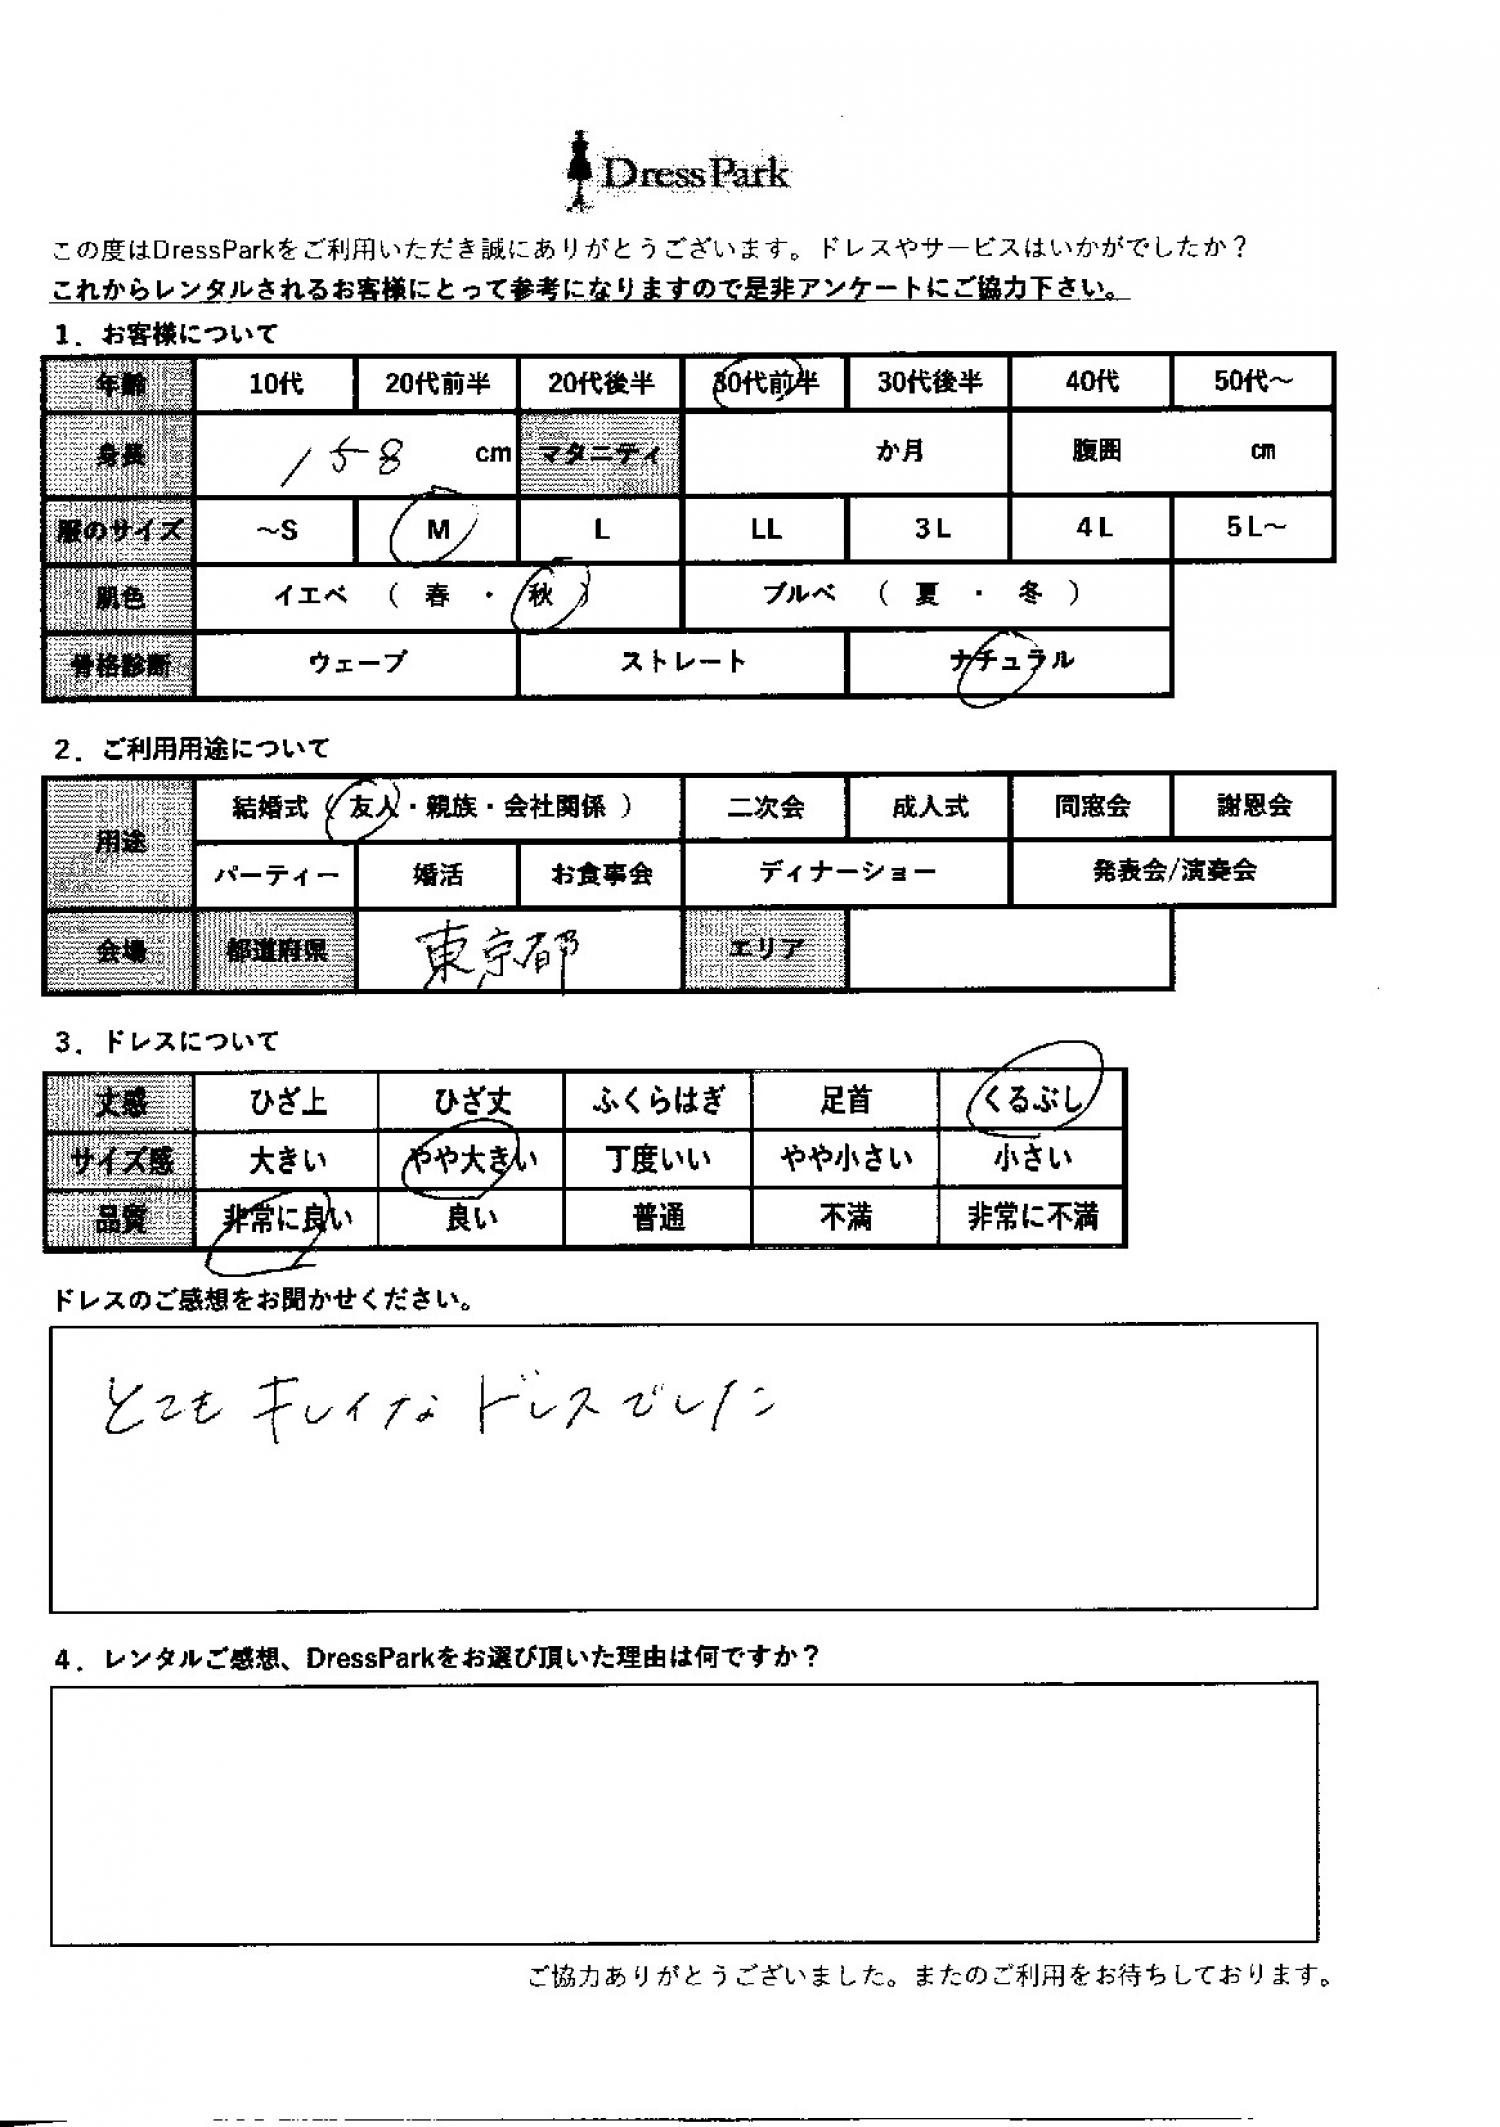 DressPark
この度はDressParkをご利用いただき誠にありがとうございます。ドレスやサービスはいかがでしたか？
これからレンタルされるお客様にとって参考になりますので是非アンケートにご協力下さい。
1．お客様について
年齢 10代 20代前半 20代後半 30代前半 30代後半 40代 50代～
身長 158 cm マタニティ か月 腹囲 ㎝
服のサイズ ～S M L LL 3L 4L 5L～
肌色 イエベ （ 春 ・ 秋 ） ブルベ （ 夏 ・ 冬 ）
骨格診断 ウェーブ ストレート ナチュラル
2．ご利用用途について
用途 結婚式（友人・親族・会社関係） 二次会 成人式 同窓会 謝恩会
パーティー 婚活 お食事会 ディナーショー 発表会/演奏会
会場 都道府県 東京都 エリア
3．ドレスについて
丈感 ひざ上 ひざ丈 ふくらはぎ 足首 くるぶし
サイズ感 大きい やや大きい 丁度いい やや小さい 小さい
品質 非常に良い 良い 普通 不満 非常に不満
ドレスのご感想をお聞かせください。
とてもキレイなドレスでした
4．レンタルご感想、DressParkをお選び頂いた理由は何ですか？
ご協力ありがとうございました。またのご利用をお待ちしております。